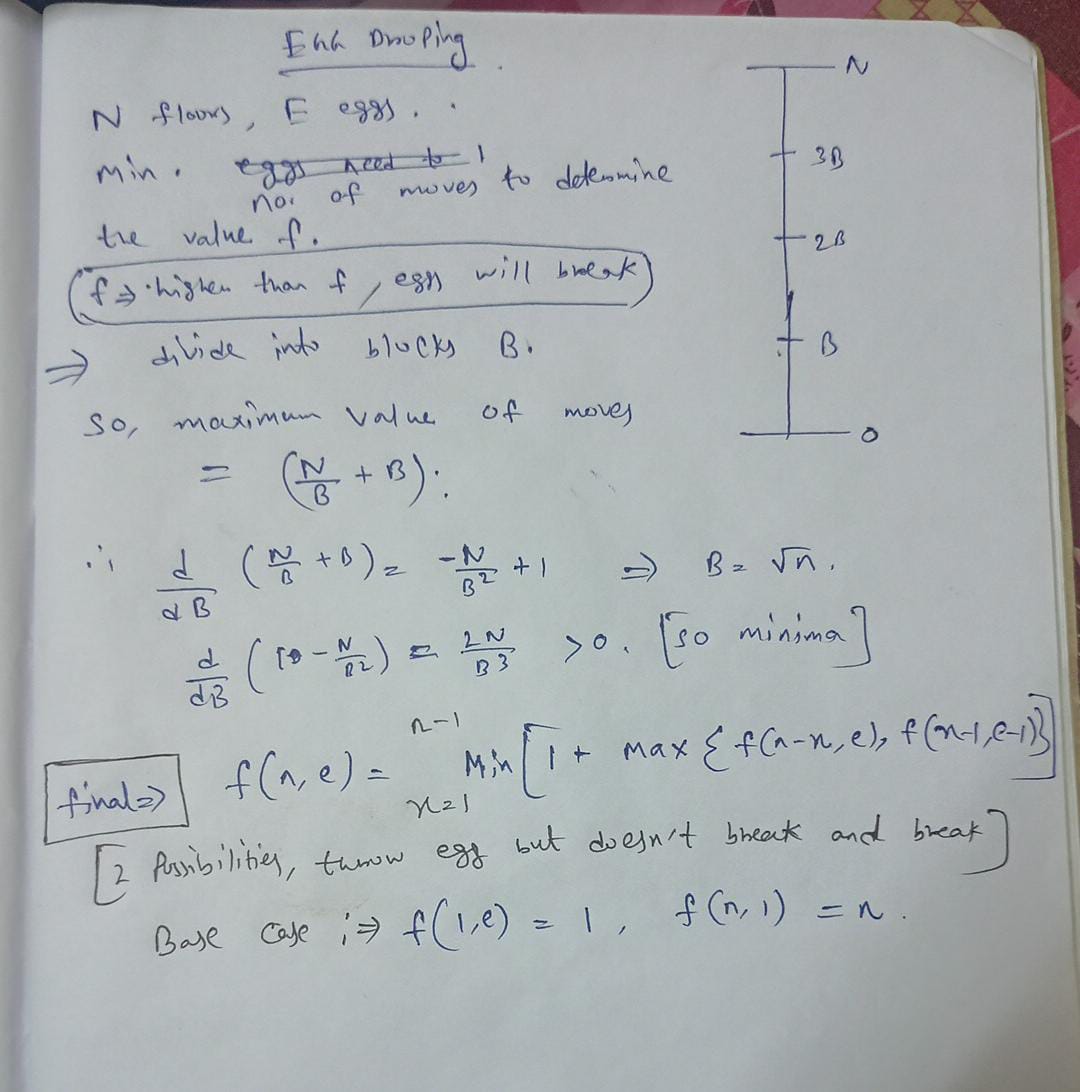 Egg Droping
N floors, E eggs.
Min. eggs need to
no. of moves to determine
the value f.
f ⇒ higher than f, egg will break
⇒ divide into blocks B.
So, maximum value of moves
= (N/B + B).
∴ d/dB (N/B + B) = -N/B² + 1 ⇒ B = √n.
d/dB (1 - N/B²) = 2N/B³ > 0. [so minima]
n-1
final ⇒ f(n, e) = Min [1 + max { f(n-x, e), f(x-1, e-1)}]
x=1
[2 Possibilities, throw egg but doesn't break and break]
Base case ;⇒ f(1,e) = 1, f(n,1) = n.
N
3B
2B
B
0